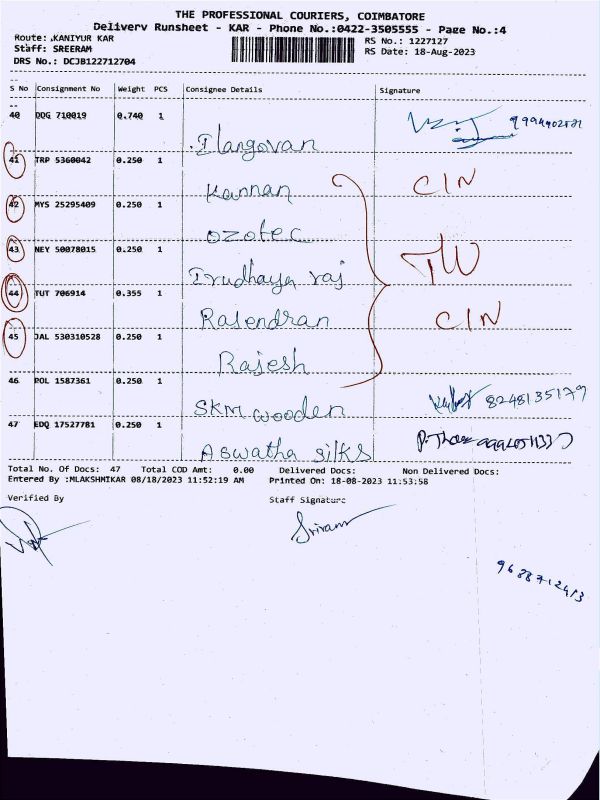 THE PROFESSIONAL COURIERS, COIMBATORE
Delivery Runsheet - KAR - Phone No.:0422-3505555 - Page No.:4
Route: KANIYUR KAR
RS No.: 1227127
Staff: SREERAM
RS Date: 18-Aug-2023
DRS No.: DCJB122712704
S No Consignment No Weight PCS Consignee Details Signature
40 DDG 710019 0.740 1 Ilangovan 9994902581
41 TRP 5360042 0.250 1 Kannan CIN
42 MYS 25295409 0.250 1 Ozotec
43 NEY 50078015 0.250 1 Irudhaya raj
44 TUT 706914 0.355 1 Rasendran CIN
45 JAL 530310528 0.250 1 Rajesh
46 ROL 1587361 0.250 1 SKM wooden 8248135179
47 EDQ 17527781 0.250 1 Aswatha silks
Total No. Of Docs: 47 Total COD Amt: 0.00 Delivered Docs: Non Delivered Docs:
Entered By :MLAKSHMIKAR 08/18/2023 11:52:19 AM Printed On: 18-08-2023 11:53:58
Verified By Staff Signature
Sriram